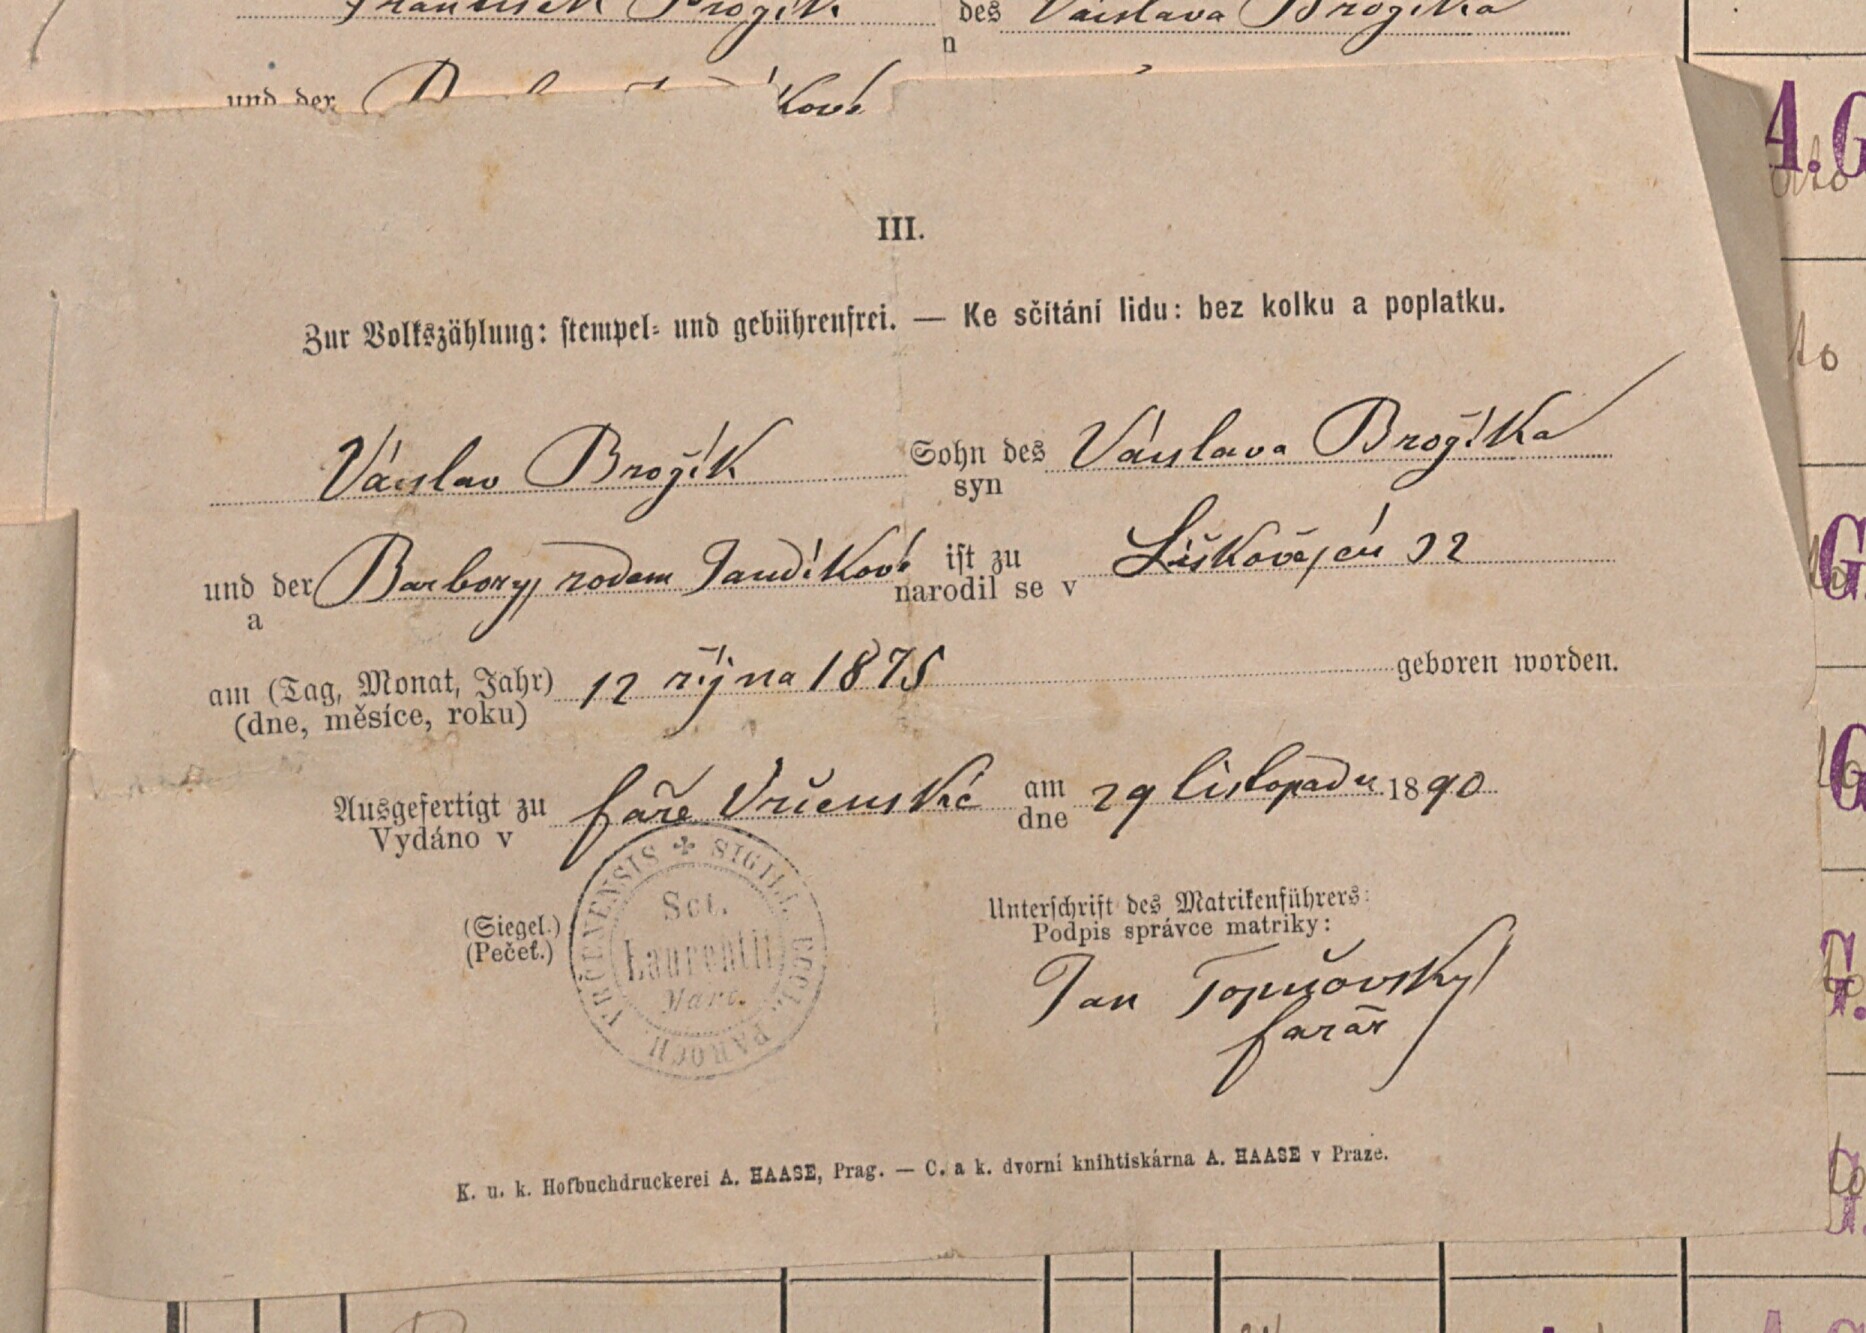 František Brožík des Václava Brožíka
n
und der ková
III.
Zur Volkszählung: stempel- und gebührenfrei. — Ke sčítání lidu: bez kolku a poplatku.
Václav Brožík Sohn des Václava Brožíka
syn
und der Barbory, rodem Jandíkové ist zu 32
a narodil se v
am (Tag, Monat, Jahr) 12 října 1875 geboren worden.
(dne, měsíce, roku)
Ausgefertigt zu faře Vrčenské am 29 listopadu 1890
Vydáno v dne
SIGILL. ECCL. PAROCH. VRČENENSIS
Sct.
Laurentii
Marc.
(Siegel.)
(Pečeť.)
Unterschrift des Matrikenführers:
Podpis správce matriky:
Jan
farář
K. u. k. Hofbuchdruckerei A. HAASE, Prag. — C. a k. dvorní knihtiskárna A. HAASE v Praze.
A.G
G
G
G.